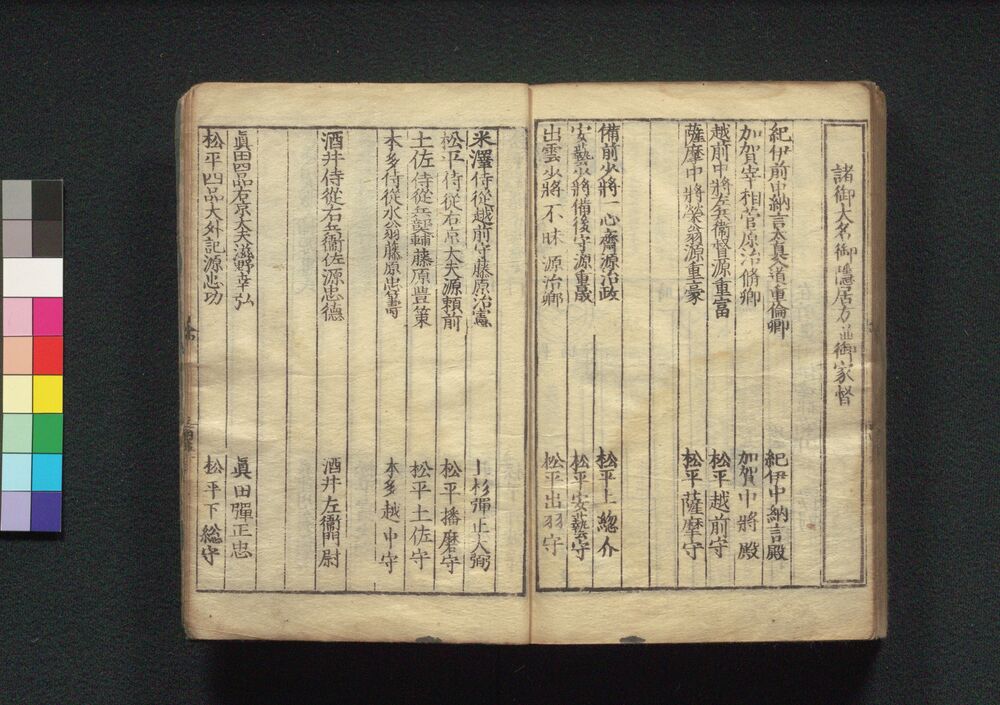 諸御大名御隠居方並御家督
紀伊前中納言大眞入道重倫卿 紀伊中納言殿
加賀宰相菅原治脩卿 加賀中將殿
越前中將左兵衞督源重富 松平越前守
薩摩中將榮翁源重豪 松平薩摩守
備前少將一心齋源治政 松平上總介
安藝少將備後守源重晟 松平安藝守
出雲少將不昧源治鄉 松平出羽守
米澤侍從越前守藤原治憲 上杉彈正大弼
松平侍從右京大夫源頼前 松平播磨守
土佐侍從兵部輔藤原豊策 松平土佐守
本多侍從水翁藤原忠籌 本多越中守
酒井侍從右兵衞佐源忠德 酒井左衞門尉
眞田四品右京大夫滋野幸弘 眞田彈正忠
松平四品大外記源忠功 松平下総守